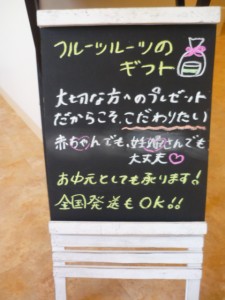 フルーツルーツの
ギフト
大切な方へのプレゼント
だからこそ、こだわりたい
赤ちゃんでも、妊婦さんでも
大丈夫♡
お中元としても承ります!
全国発送もOK!!